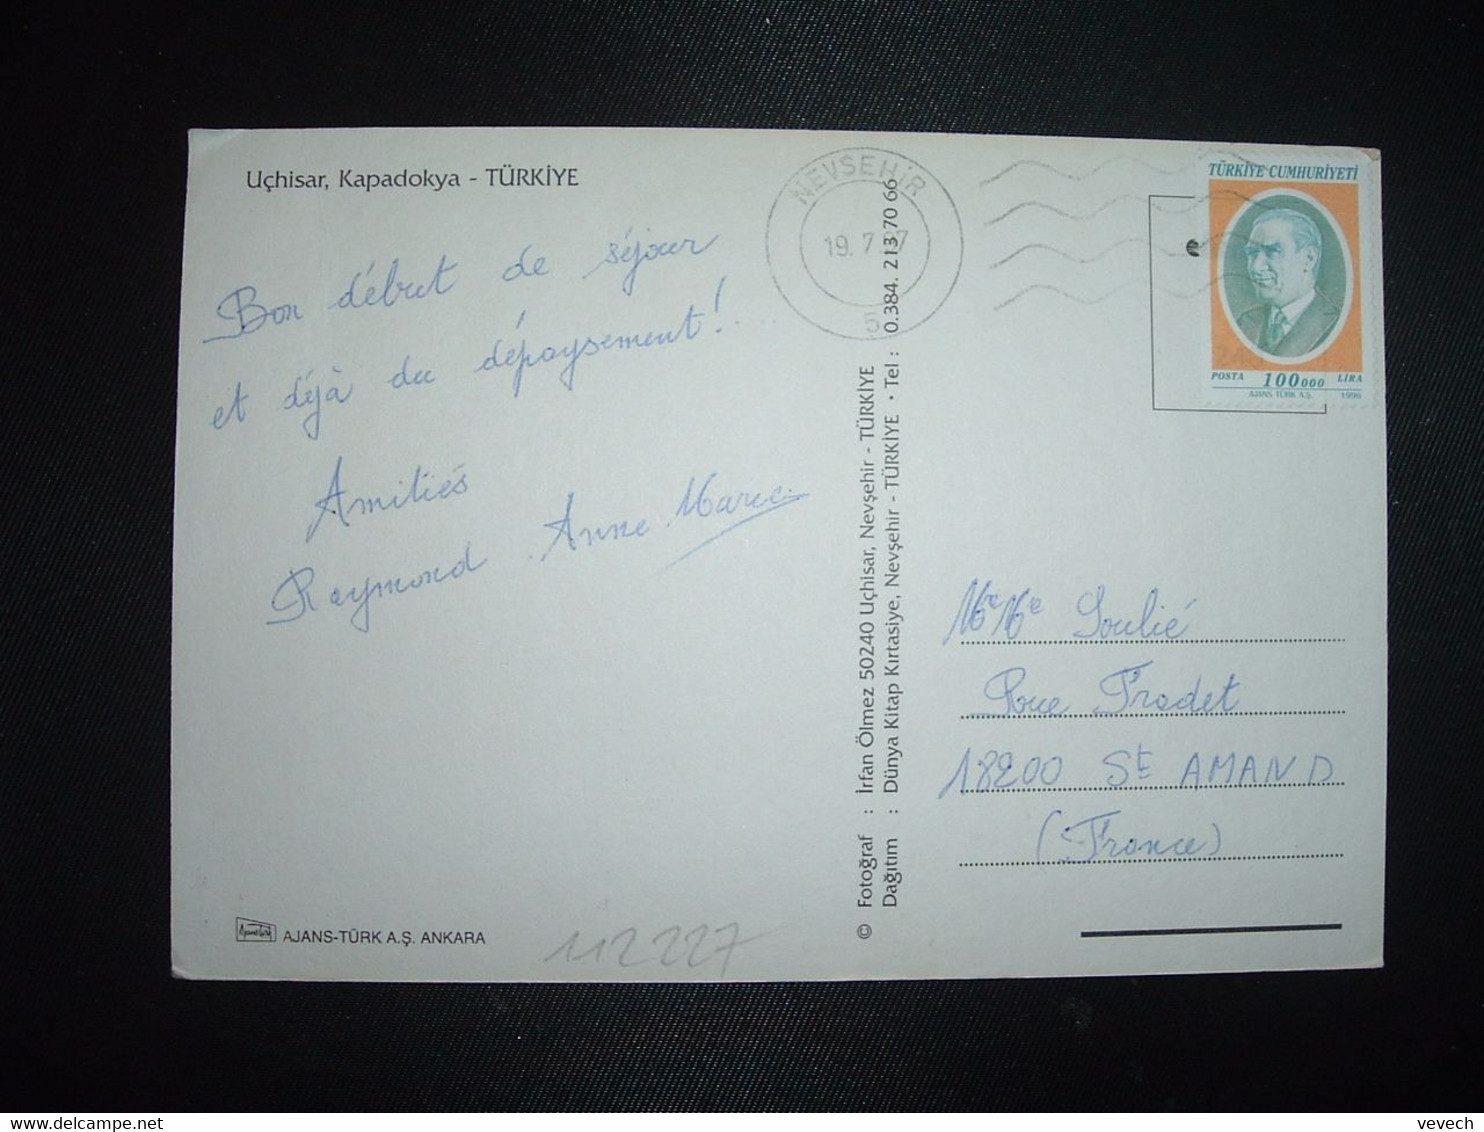 Uçhisar, Kapadokya - TÜRKİYE
Bon début de séjour
et déjà du dépaysement!....
Amitiés
Raymond Anne Marie
AJANS-TÜRK A.Ş. ANKARA
112227
© Fotoğraf : İrfan Ölmez 50240 Uçhisar, Nevşehir - TÜRKİYE
Dağıtım : Dünya Kitap Kırtasiye, Nevşehir - TÜRKİYE • Tel : 0.384. 213 70 66
NEVŞEHİR
19. 7. 97
5
TÜRKİYE CUMHURİYETİ
POSTA 100000 LİRA
AJANS TÜRK A.Ş. 1996
Soulié
Rue Fradet
18200 St AMAND
(France)
vevech